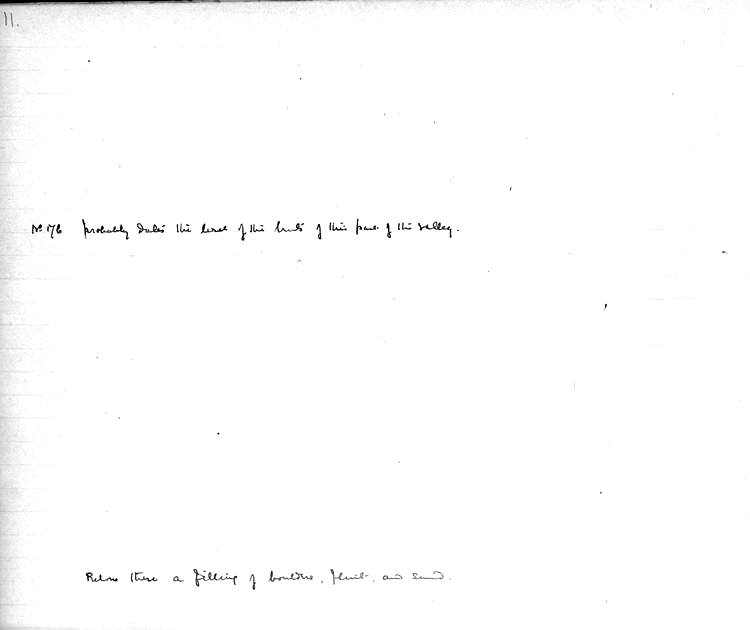 11.
No 176 probably dates the level of the huts of this part of the valley.
Below these a filling of boulders, flint, and sand.